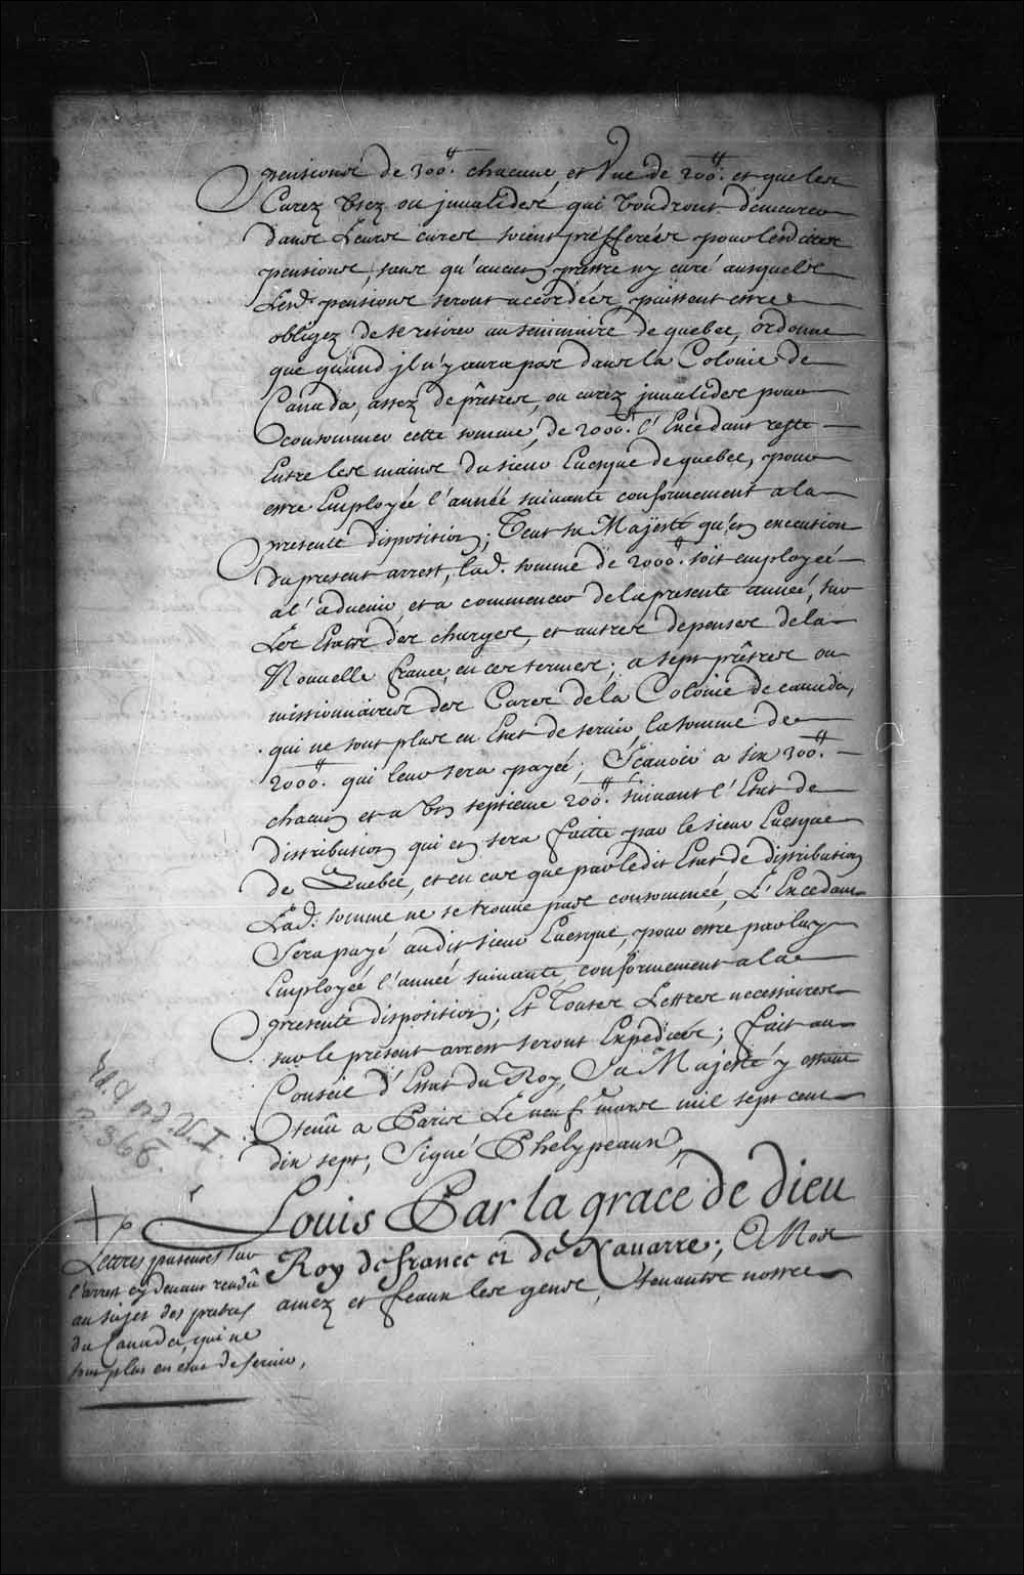 pensions de 300ᵗᵗ. chacune et Une de 200ᵗᵗ. et que les
Curez Usez ou jnualides qui Voudront demeurer
dans Leurs cures soient préfferées pour lesdites
pensions, sans qu'aucun prestre ny curé ausquels
Lesd. pensions seront accordées, puissent estre
obligez de se retirer au seminaire de quebec, ordonne
que quand jl n'y aura pas dans la Colonie de
Canada, assez de prêtres, ou curez jnualides pour
consommer cette somme, de 2000ᵗᵗ. l'Excedant reste
Entre les mains du sieur Euesque de quebec, pour
estre Employée l'année suivante conformement a la
presente disposition; Veut sa Majesté qu'en execution
du present arrest, lad. somme de 2000ᵗᵗ. soit employée
a l'aduenir, et a commencer de la presente année, sur
Les Etats des charges, et autres depenses de la
Nouuelle france, en ces termes; a sept prêtres ou
missionnaires des Cures de la Colonie de canada,
qui ne sont plus en Etat de seruir, la somme de
2000ᵗᵗ. qui leur sera payée; Scauoir a six 300ᵗᵗ.
chacun et a Un septieme 200ᵗᵗ. suiuant l'Etat de
distribution qui en sera faitte par le sieur Euesque
de Quebec, et en cas que par ledit Etat de distribution
Lad. somme ne se trouue pas consommée, L'Excedant
Sera payé audit sieur Euesque, pour estre par luy
Employée l'année suiuante, conformement a la
presente disposition; Et Toutes Lettres necessaires
sur le present arrest seront Expediées; fait au
Conseil d'Estat du Roy, Sa Majesté y estant
tenû a Paris Le neuf mars mil sept cent
dix sept, Signé Phelypeaux,
Louis Par la grace de dieu
Roy de france et de Nauarre; A Nos
amez et feaux les gens, tenants nostre
Lettres patentes sur
l'arrest cy deuant rendû
au sujet des prestres
du Canada, qui ne
sont plus en état de seruir,